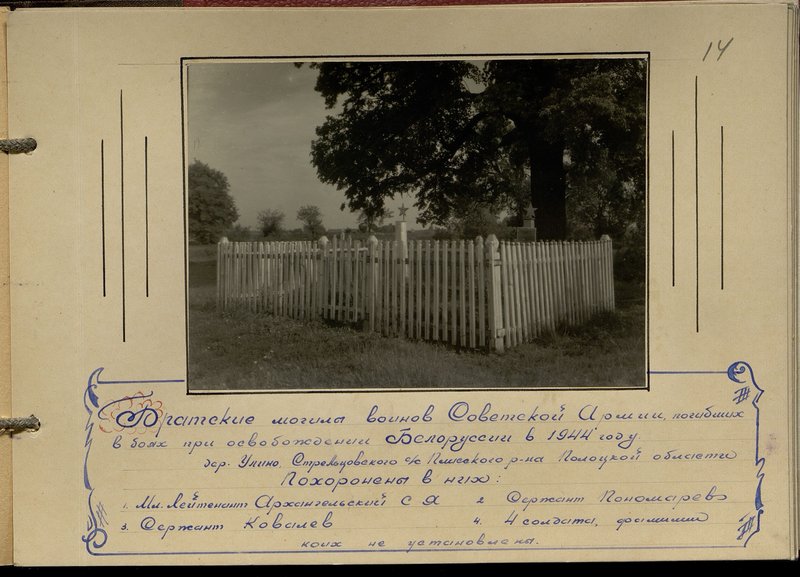 14
Братские могилы воинов Советской Армии, погибших
в боях при освобождении Белоруссии в 1944 году.
дер. Улино, Стрельцовского с/с Плисского р-на Полоцкой области
Похоронены в них:
1. Мл. Лейтенант Архангельский С Я 2. Сержант Пономарев
3. Сержант Ковалев 4. 4 солдата, фамилии
коих не установлены.